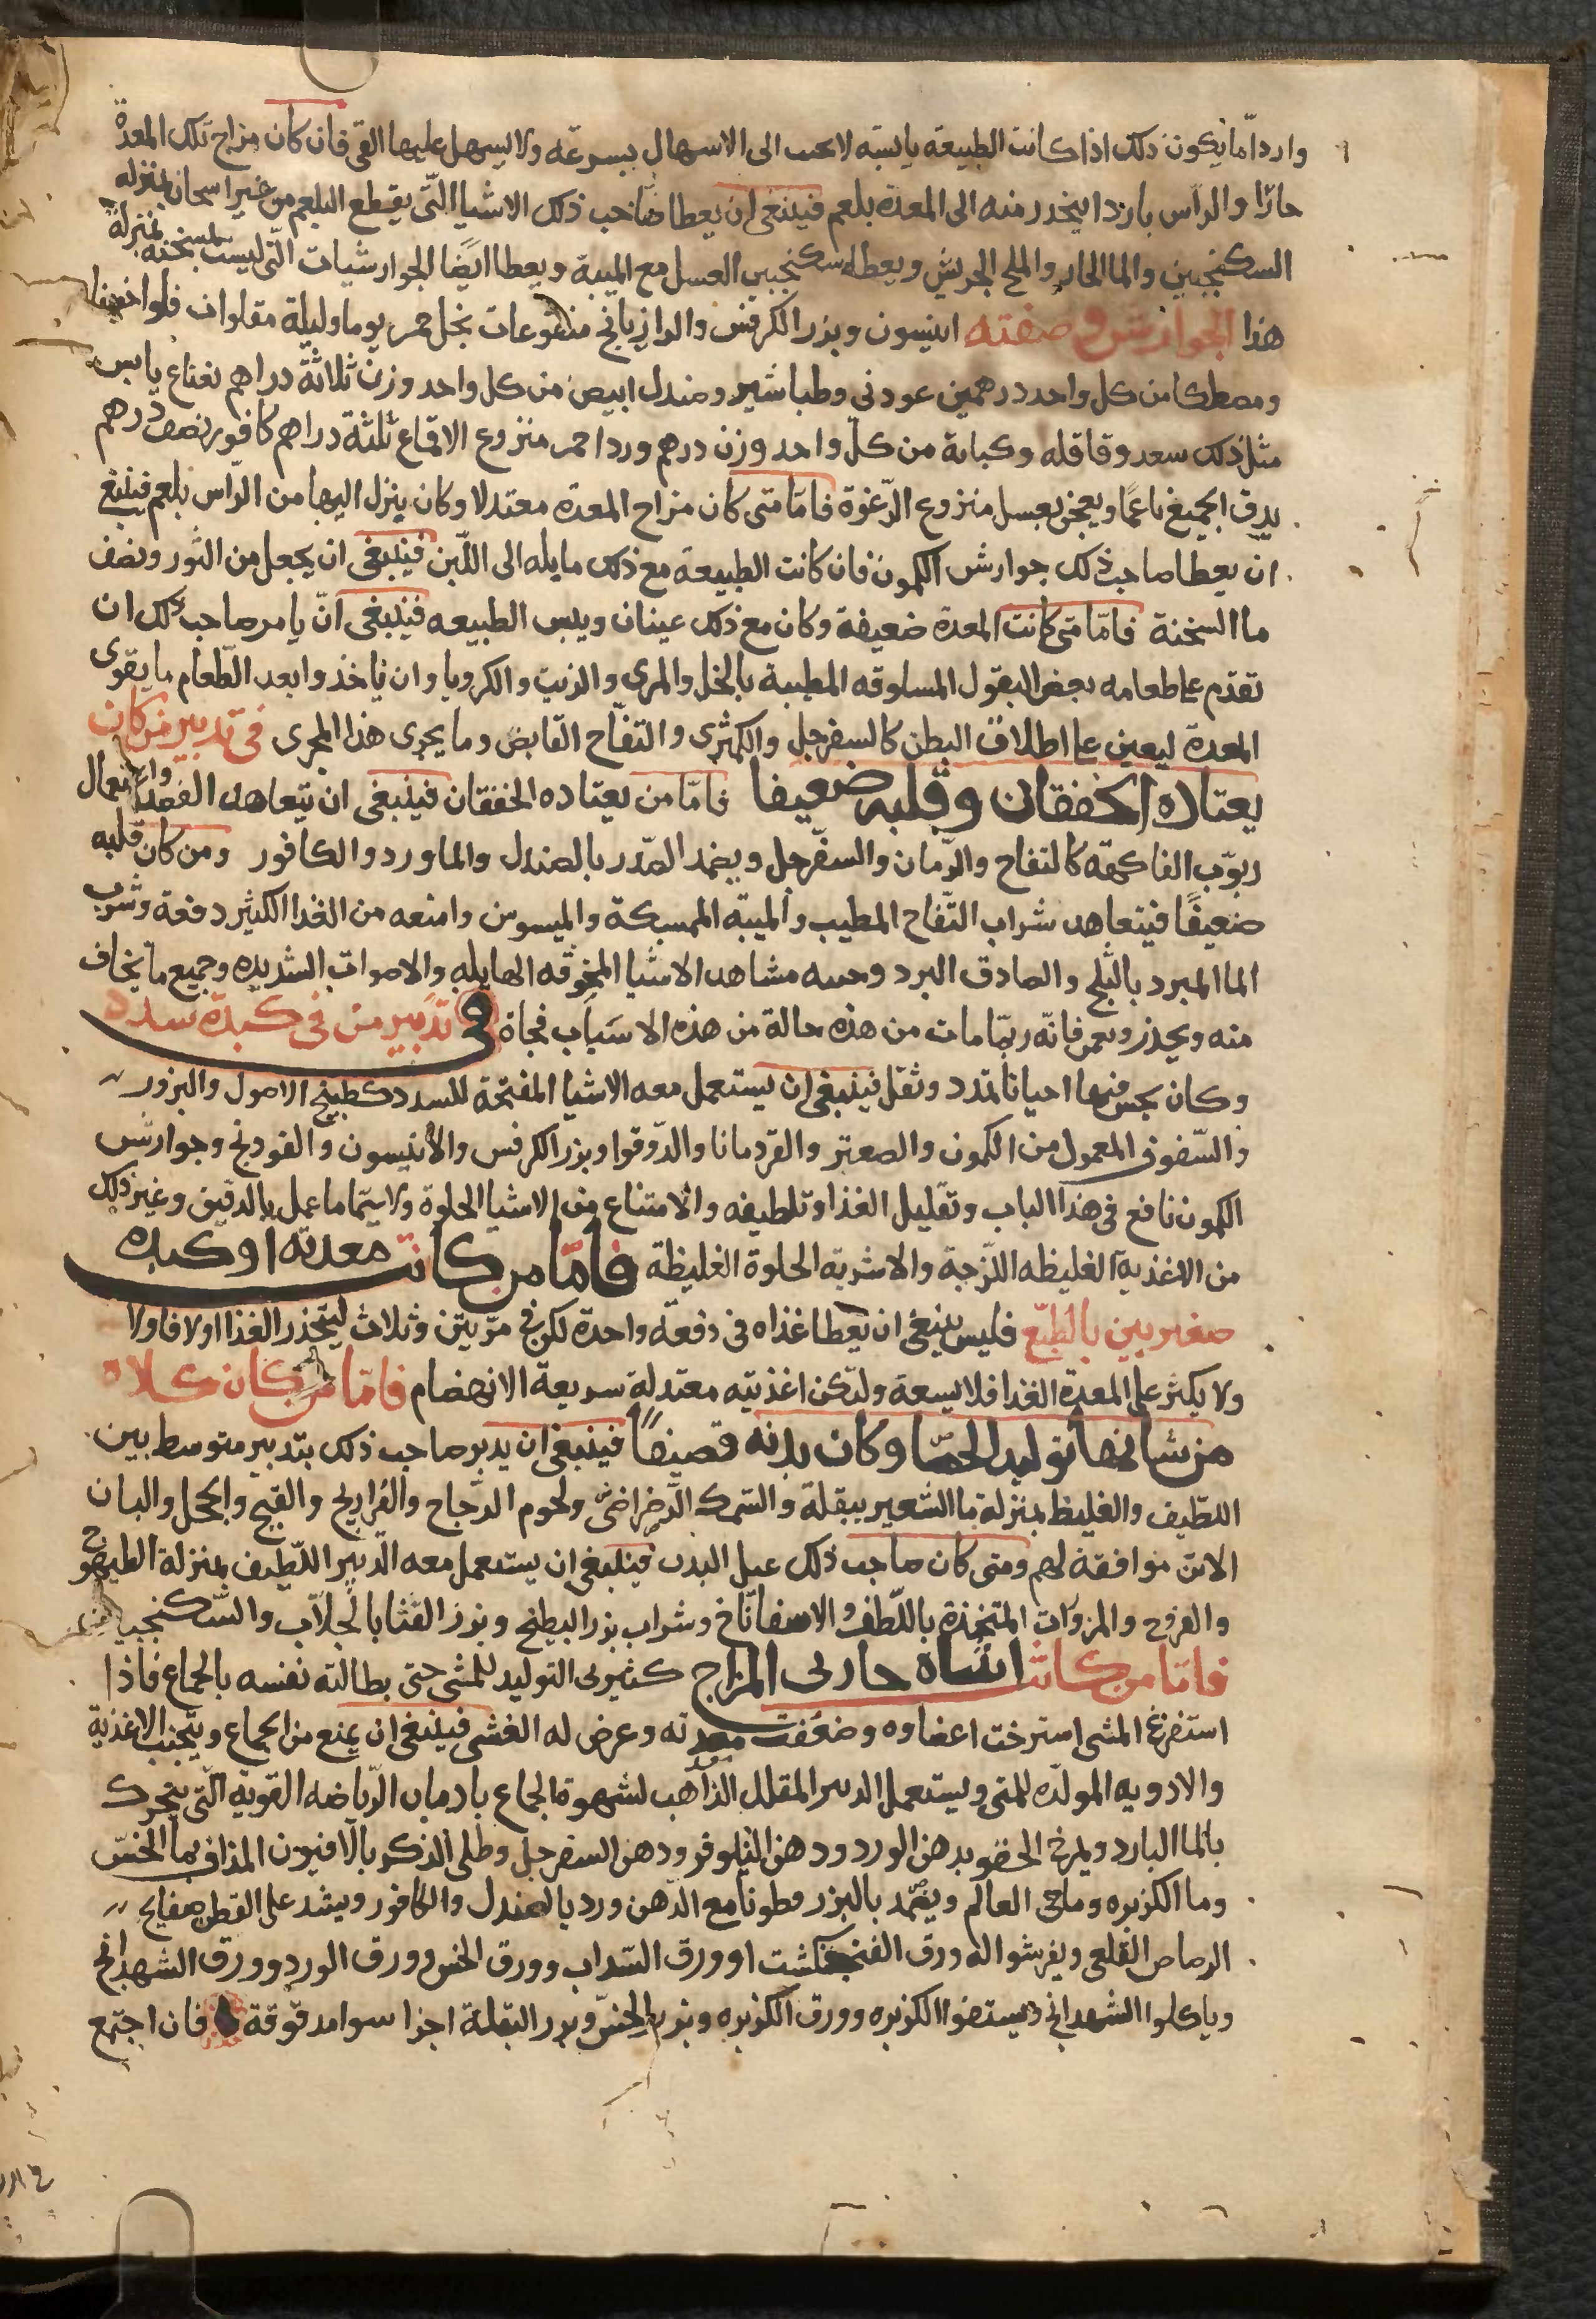 واردا ما يكون ذلك اذا كانت الطبيعة يابسه لا تجب الى الاسهال بسرعه ولا يسهل عليها القى فان كان مزاج تلك المعدة
حارا والراس باردا ينحدر منه الى المعدة بلغم فينبغى ان يعطا صاحب ذلك الاشيا التى يقطع البلغم من غير اسخان بمنزله
السكنجبين والما الحار والملح الجريش ويعطا سكنجبين العسل مع الميبة ويعطا ايضا الجوارشيات التى ليست بمسخنه بمنزلة
هذا الجوارش وصفته انيسون وبزر الكرفس والرازيانج منقوعات بخل خمر يوما وليلة مقلوات قلوا خفيفا
ومصطكا من كل واحد درهمين عود نى وطباشير وصندل ابيض من كل واحد وزن ثلاثة دراهم نعناع يابس
مثل ذلك سعد وقاقله وكبابة من كل واحد وزن درهم ورد احمر منزوع الاقماع ثلثة دراهم كافور نصف درهم
يدق الجميع ناعما ويعجن بعسل منزوع الرغوة فامّا متى كان مزاج المعدة معتدلا وكان ينزل اليها من الراس بلغم فينبغى
ان يعطا صاحب ذلك جوارش الكمون فان كانت الطبيعة مع ذلك مايله الى اللين فينبغى ان يجعل من الثور ونصف
ما السخنة فامّا متى كانت المعدة ضعيفة وكان مع ذلك عينان ويبس الطبيعه فينبغى انّ يامر صاحب ذلك ان
تقدم على طعامه بعض البقول المسلوقه المطيبة بالخل والمرى والزيت والكرويا وان ياخذوا بعد الطعام ما يقوى
المعدة ليعين على اطلاق البطن كالسفرجل والكمثرى والتفاح القابض وما يجرى هذا المجرى فى تدبير من كان
يعتاده الخفقان وقلبه ضعيفا فامّا من يعتاده الخفقان فينبغى ان يتعاهد الفصد واستعمال
ربوب الفاكهه كالتفاح والرمان والسفرجل ويضمد الصدر بالصندل والماورد والكافور ومن كان قلبه
ضعيفًا فيتعاهد شراب التفاح المطيب والميبه الممسكة والميسوسن وامنعه من الغذا الكثير دفعة وشرب
الما المبرد بالثلج والصادق البرد وجنبه مشاهد الاشيا المخوفه الهايله والاصوات الشديده وجميع ما يخاف
منه ويحذر وبعمر فانه ربما مات من هذه حالة من هذه الاسباب فجاة فى تدبير من فى كبدة سدد
وكان يجس فيها احيانا تمدد وثقل فينبغى ان يستعمل معه الاشيا المفتحة للسدد كطبيخ الاصول والبزور
والسفوف المعمول من الكمون والصعتر والقردمانا والدوقوا وبزر الكرفس والانيسون والفودنج وجوارش
الكمون نافع فى هذا الباب وتقليل الغذا وتلطيفه والامتناع من الاشيا الحلوة ولا سيّما ما عمل بالدقيق وغير ذلك
من الاغذية الغليظه اللزجة والاشربه الحلوة الغليظة فامّا من كانت معدته او كبده
صغيرين بالطبع فليس ينبغى ان يعطا غذاه فى دفعة واحدة لكن فى مرّتين وثلاث لينحدر الغذا اولا فاولا
ولا يكثر على المعدة الغذا فلا يسعة ولتكن اغذيته معتدلة سريعة الانهضام فامّا من كان كلاه
من شانها توليد الحصا وكان بدنه قضيفًا فينبغى ان يدبر صاحب ذلك بتدبير متوسط بين
اللطيف والغليظ بمنزلة ما الشعير ببقلة والسمك الرضراضى ولحوم الدجاج والفراريج والقبج والحجل والبان
الاتن موافقة لهم ومتى كان صاحب ذلك عبل البدن فينبغى ان يستعمل معه التدبير اللطيف بمنزلة الطيهوج
والفروج والمزورات المتخذة باللطف والاسفاناخ وشراب بزر البطيخ وبزر القثا بالجلاب والسكنجبين
فامّا من كانت انثياه حارتى المزاج كثيرتى التوليد للمنى حتى بطالته نفسه بالجماع فاذا
استفرغ المنى استرخت اعضاوه وضعفت معدته وعرض له الغشى فينبغى ان يمنع من الجماع ويتجنب الاغذية
والادويه المولده للمنى ويستعمل التدبير المقلل الذاهب لشهوة الجماع بادمان الرياضه القوية التى يتحرك
بالما البارد ويمرخ الحقو بدهن الورد ودهن النيلوفر ودهن السفرجل وطلى الذكر بالافيون المذاف بما الخس
وما الكزبره وما حى العالم ويضمد بالبزر قطونا مع الدهن ورد بالصندل والكافور ويشد على القطن صفايح
الرصاص القلعى ويفرشوا له ورق الفنجنكشت او ورق السداب وورق الخس وورق الورد وورق الشهدانج
وياكلوا الشهدانج ويستفوا الكزبره وورق الكزبره وبزر الخس وبزر البقلة اجزا سوا مدقوقة فان اجتمع